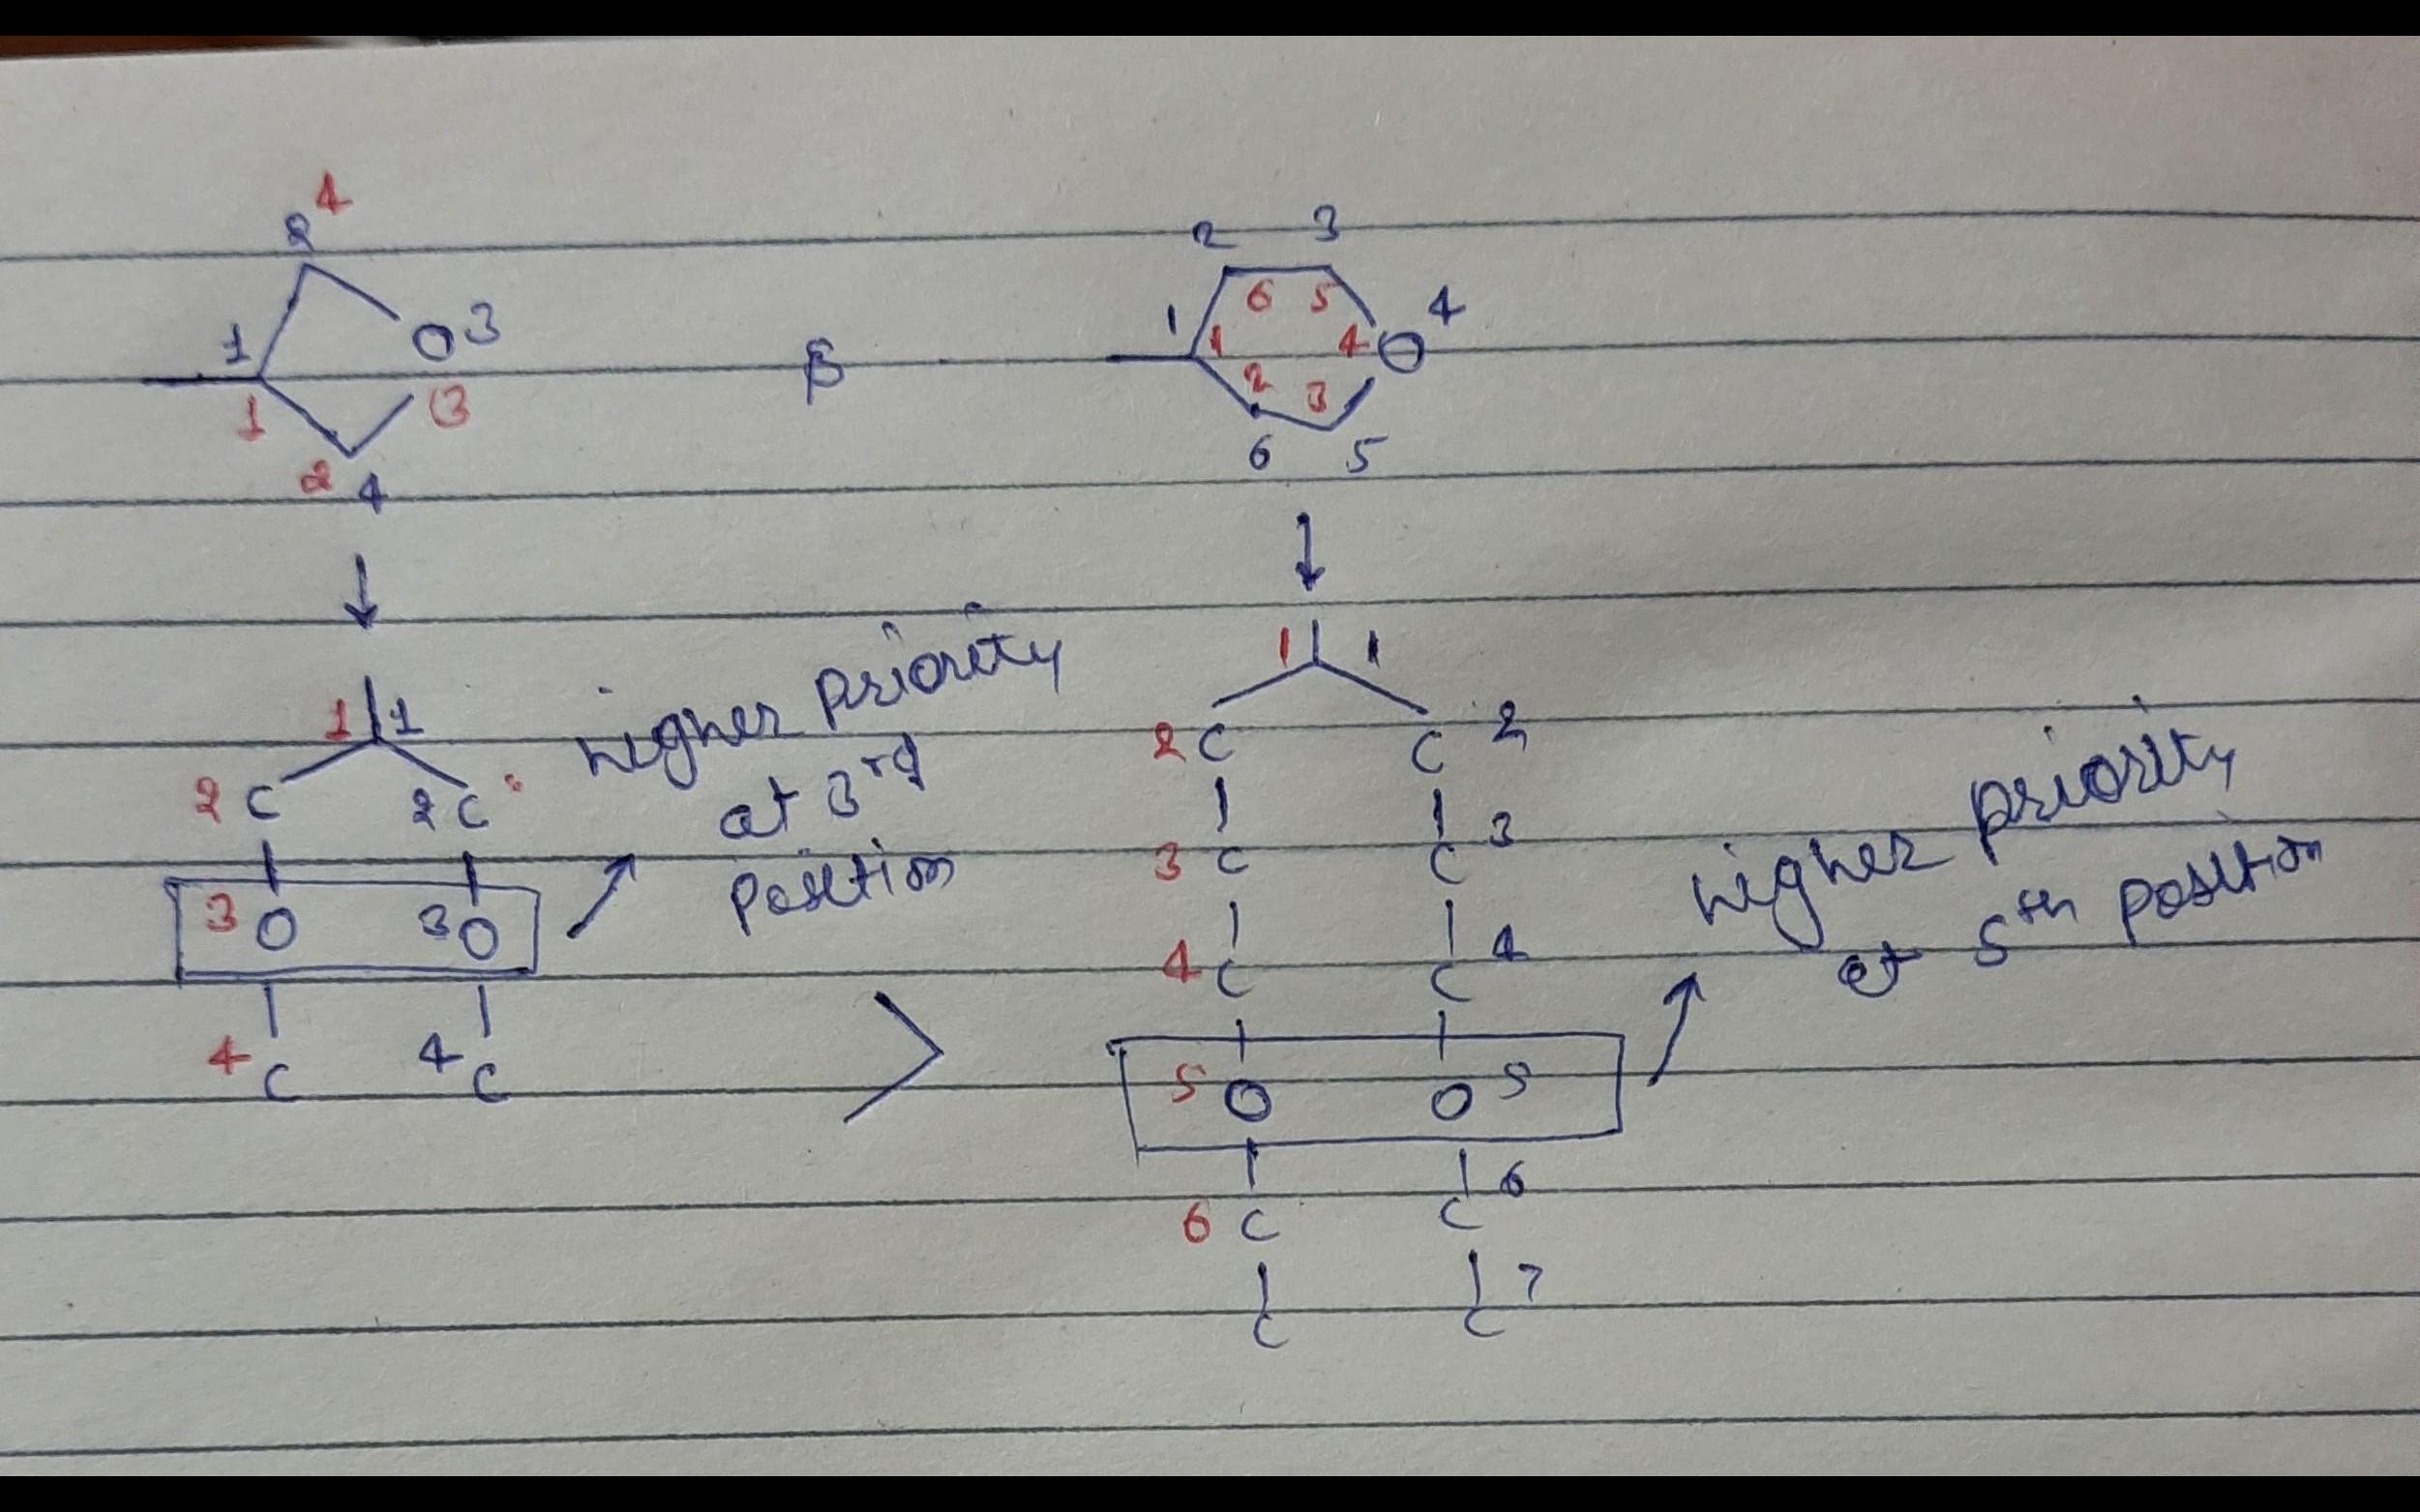 2 4
2 3
O 3
1
1
3
2 4
&
6 5
1
1
4 O 4
2 3
6 5
1 1
2 C 2 C
higher priority
at 3rd
position
3 O 3 O
4 C 4 C
>
1 1
2 C C 2
3 C C 3
4 C C 4
higher priority
at 5th position
5 O O 5
6 C C 6
C C 7